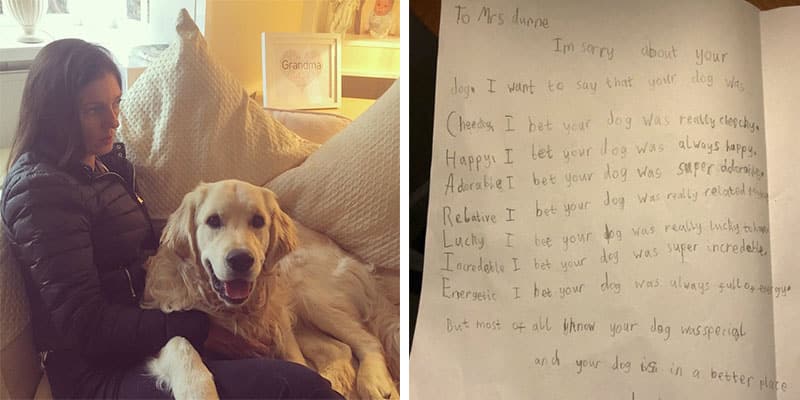 Grandma
To Mrs dunne
Im sorry about your
dog. I want to say that your dog was
Cheeky, I bet your dog was really cheecky.
Happy, I bet your dog was always happy.
Adorable I bet your dog was super adorable.
Relative I bet your dog was really related to you
Lucky I bet your dog was really lucky to have
Incredable I bet your dog was super incredable.
Energetic I bet your dog was always full of energy.
But most of all I know your dog was special
and your dog is in a better place